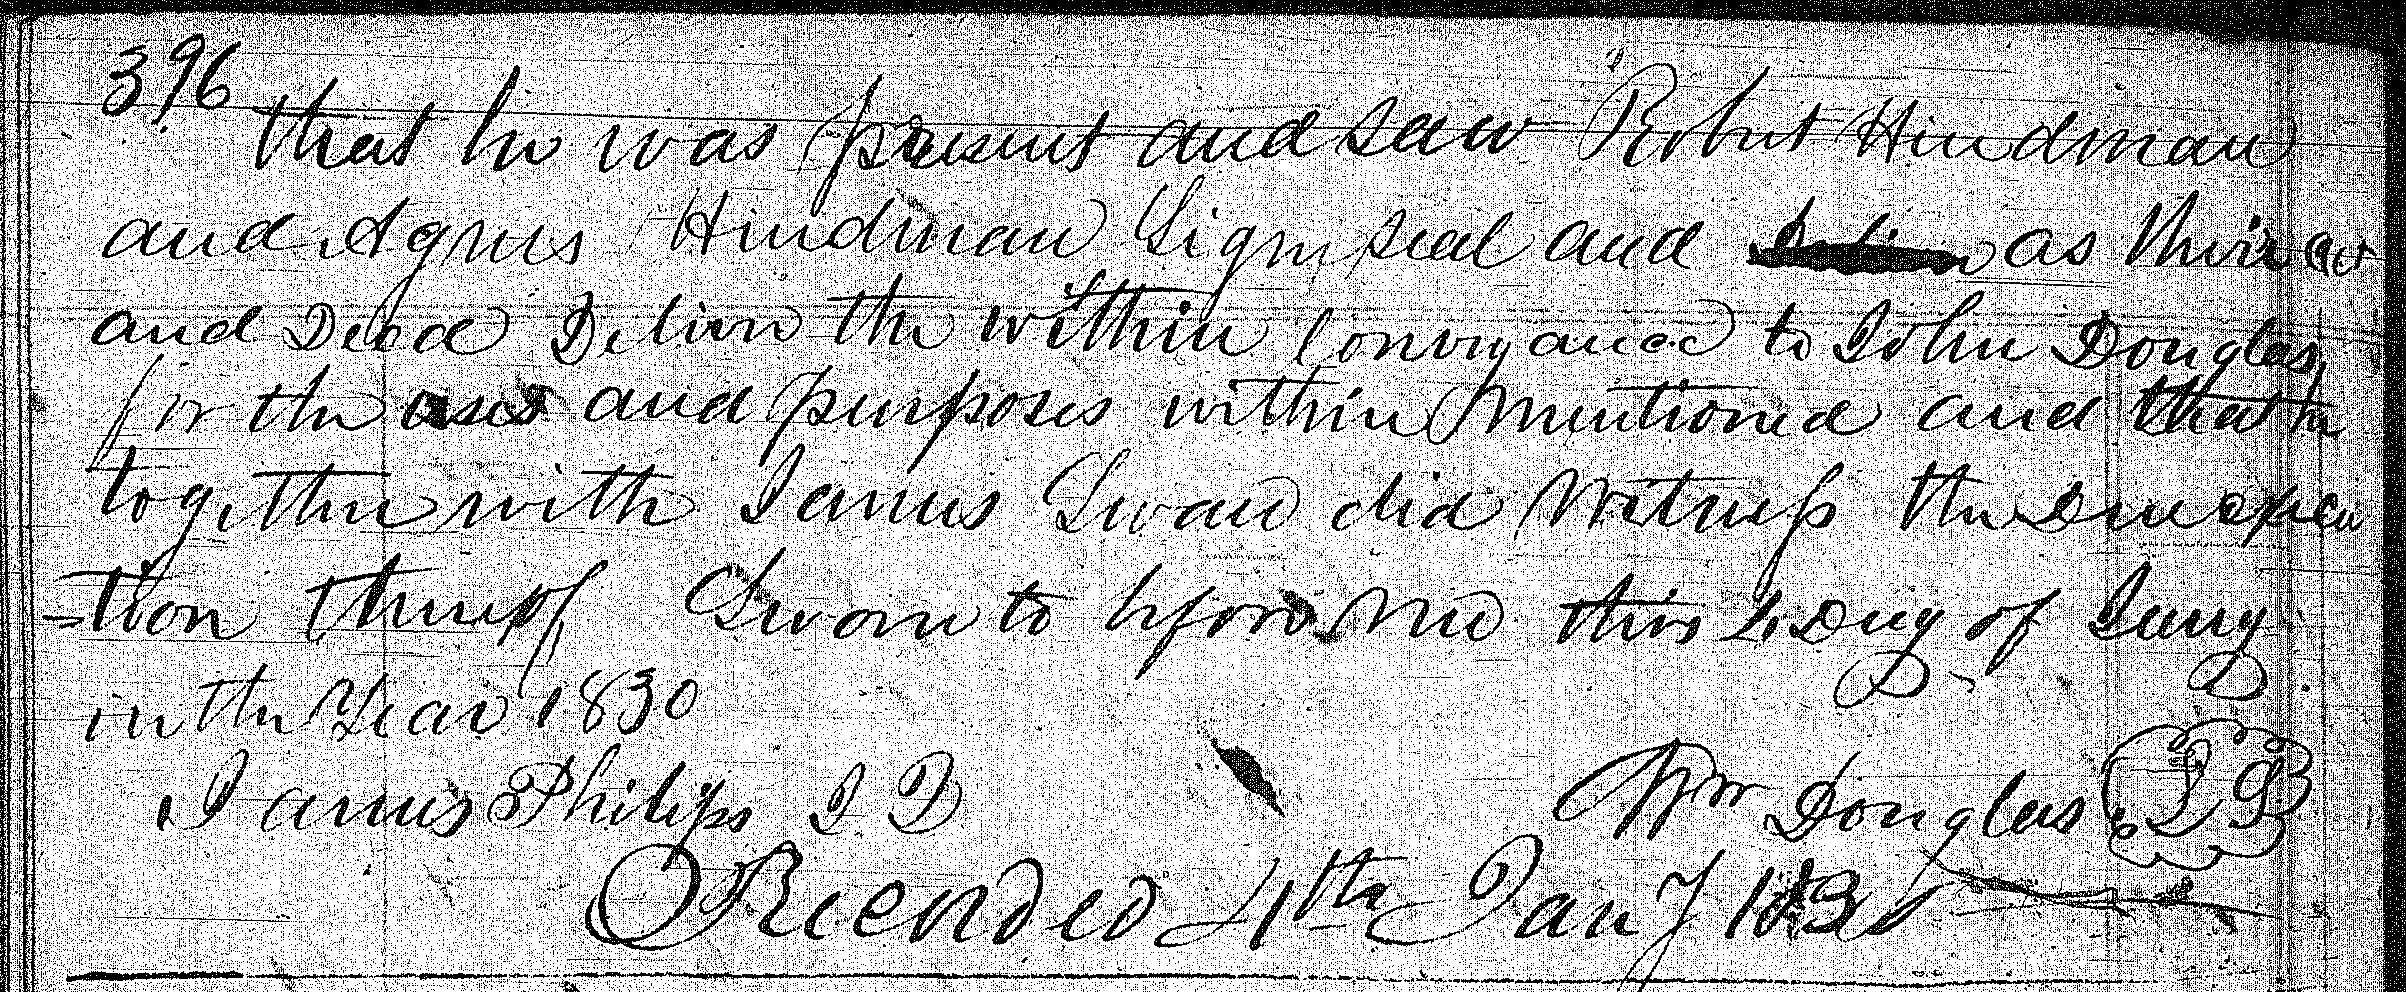 396
that he was present and saw Robert Hindman
and Agnes Hindman Sign seal and as their act
and Deed Deliver the within Conveyance to John Douglas
for the uses and purposes within Mentioned and that he
together with James Swan did Witness the Due execu
=tion thereof Sworn to before Me this Day of Jany
in the Year 1830
James Philips J P
Wm Douglas LS
Recorded 4th Jany